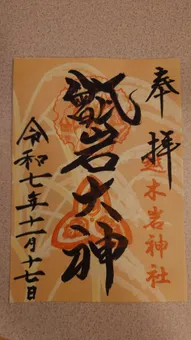 奉拝
越木岩神社
甑岩大神
令和七年十二月十七日